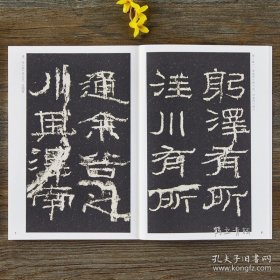 躬澤有所
注川有所
通余谷之
川其澤南
孔夫子旧书网